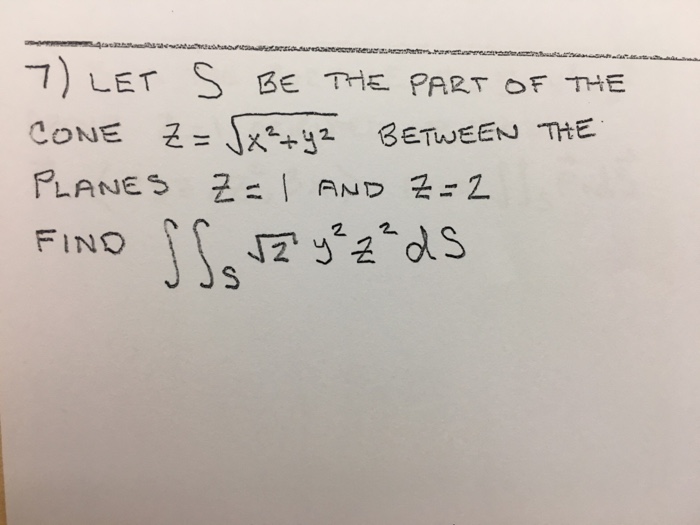 7) LET S BE THE PART OF THE
CONE Z = √x²+y² BETWEEN THE
PLANES Z = 1 AND Z = 2
FIND ∫∫_S √2 y² z² dS